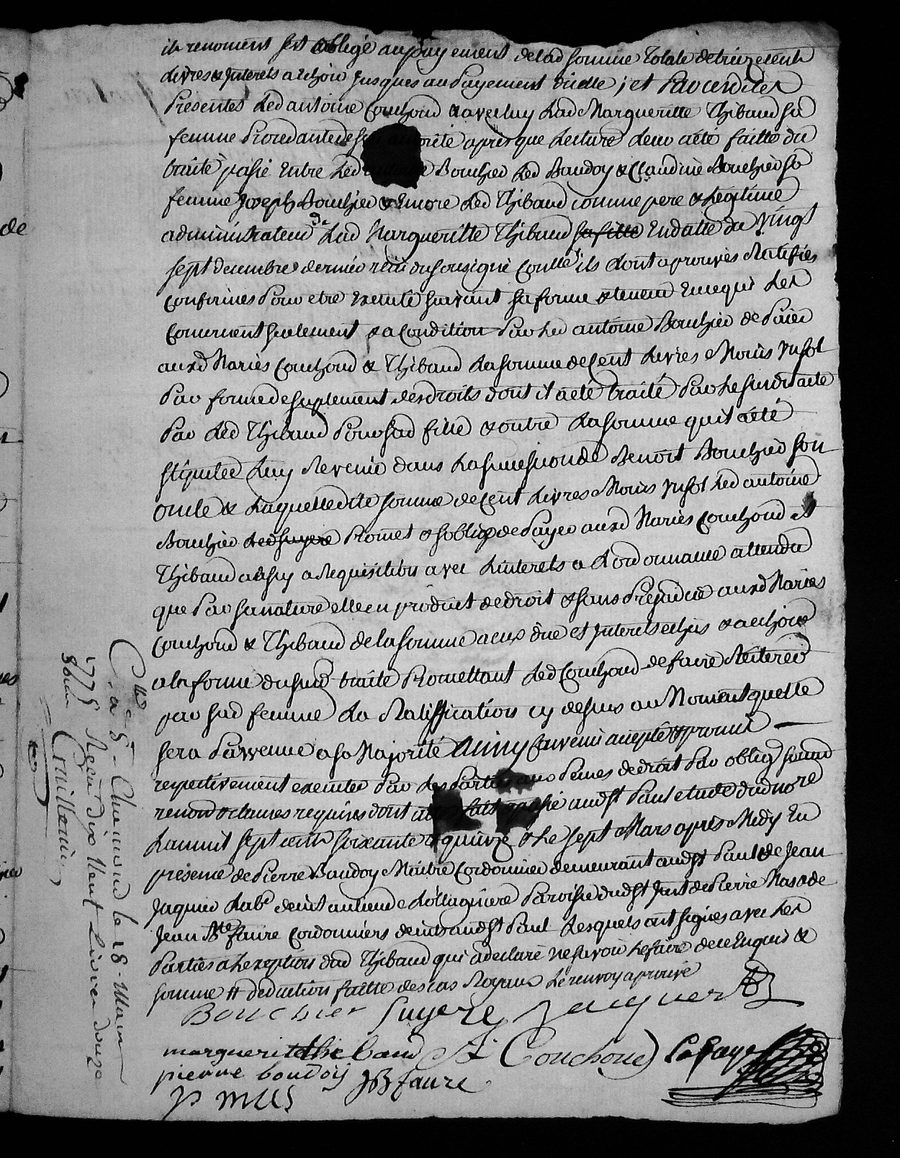 renoncent s'est obligé au payement de lad somme totale de treize cents
livres & Interets a echoir jusques au Payement dicelle ; et Par ces dites
Presentes Led antoine Couchoud & avec luy Lad Margueritte Thibaud sa
femme Procedante de son autorité apres que Lecture leur a été faitte du
traité passé Entre Led antoine Bouchier Led Baudoy & Claudine Bouchier sa
femme Joseph Bouchier & Encore Led Thibaud comme pere & Légitime
administrateur de Lad Margueritte Thibaud sa fille En datte du vingt
sept decembre dernier recu du sousigné Contlle ils ont aprouvés Ratifiés
Confirmés Pour etre executé suivant sa forme & teneur En ce qui Les
Concernent seulement & a condition Par Led antoine Bouchier de Païer
auxd Mariés Couchoud & Thibaud La somme de Cent Livres
Par forme de suplement des droits dont il a été traité Par Le susd acte
Par Led Thibaud Pour sad fille & outre La somme quil a été
stipulée Luy Revenir dans La succession de Benoit Bouchier son
oncle & Laquelle dite somme de Cent Livres Led antoine
Bouchier Promet & soblige de Payer auxd Mariés Couchoud et
Thibaud a requisition avec L'interets a L'ordonnance attendu
que Par sa nature elle en produit de droit & sans Prejudice auxd Mariés
Couchoud & Thibaud de la somme a eux düe et Interets echus & a echoir
a la forme du susd traité Promettant Led Couchoud de faire Reiterer
par sad femme La Ratiffication cy dessus au Moment quelle
sera Parvenue a sa Majorité Ainsy Convenu accepté & promis
respectivement executer Par Les Parties aux Peines de droit Par oblign soumon
renonon & clauses requises dont acte fait & passé aud St Paul etude du nore
Lan mil sept cent soixante & quinze & Le sept Mars après Midy En
présence de Pierre Baudoy Maitre Cordonier demeurant aud St Paul de Jean
Jaquier Labr demt au lieu de Paroisse dud St Just de Pierre Mas & de
Jean Bte Faure Cordonniers demt aud St Paul Lesquels ont signés avec Les
Parties a Lexception dud Thibaud qui a declaré ne savoir Le faire de ce Enquis &
sommé # deduction faitte des cas Royaux Le renvoy aprouvé
Bouchier Sugere Jacquier
marguerit thibaud A Couchoud Lafaye
pierre boudoy JB faure
P mas
Cllé a St Chamond le 18 Mars
1775 Reçu dix Neuf Livres douze